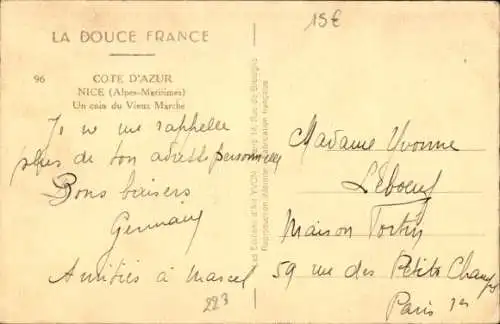 15€
LA DOUCE FRANCE
96 COTE D'AZUR
NICE (Alpes-Maritimes)
Un coin du Vieux Marché
Je ne me rappelle
plus de ton adresse personnelle
Bons baisers
Germain
Amitiés à Marcel
223
Les Editions d'Art YVON, Paris, 15, Rue de
Reproduction interdite. Fabrication française
Madame Yvonne
Leboeuf
Maison Tortin
59 rue des Petits Champs
Paris 1er